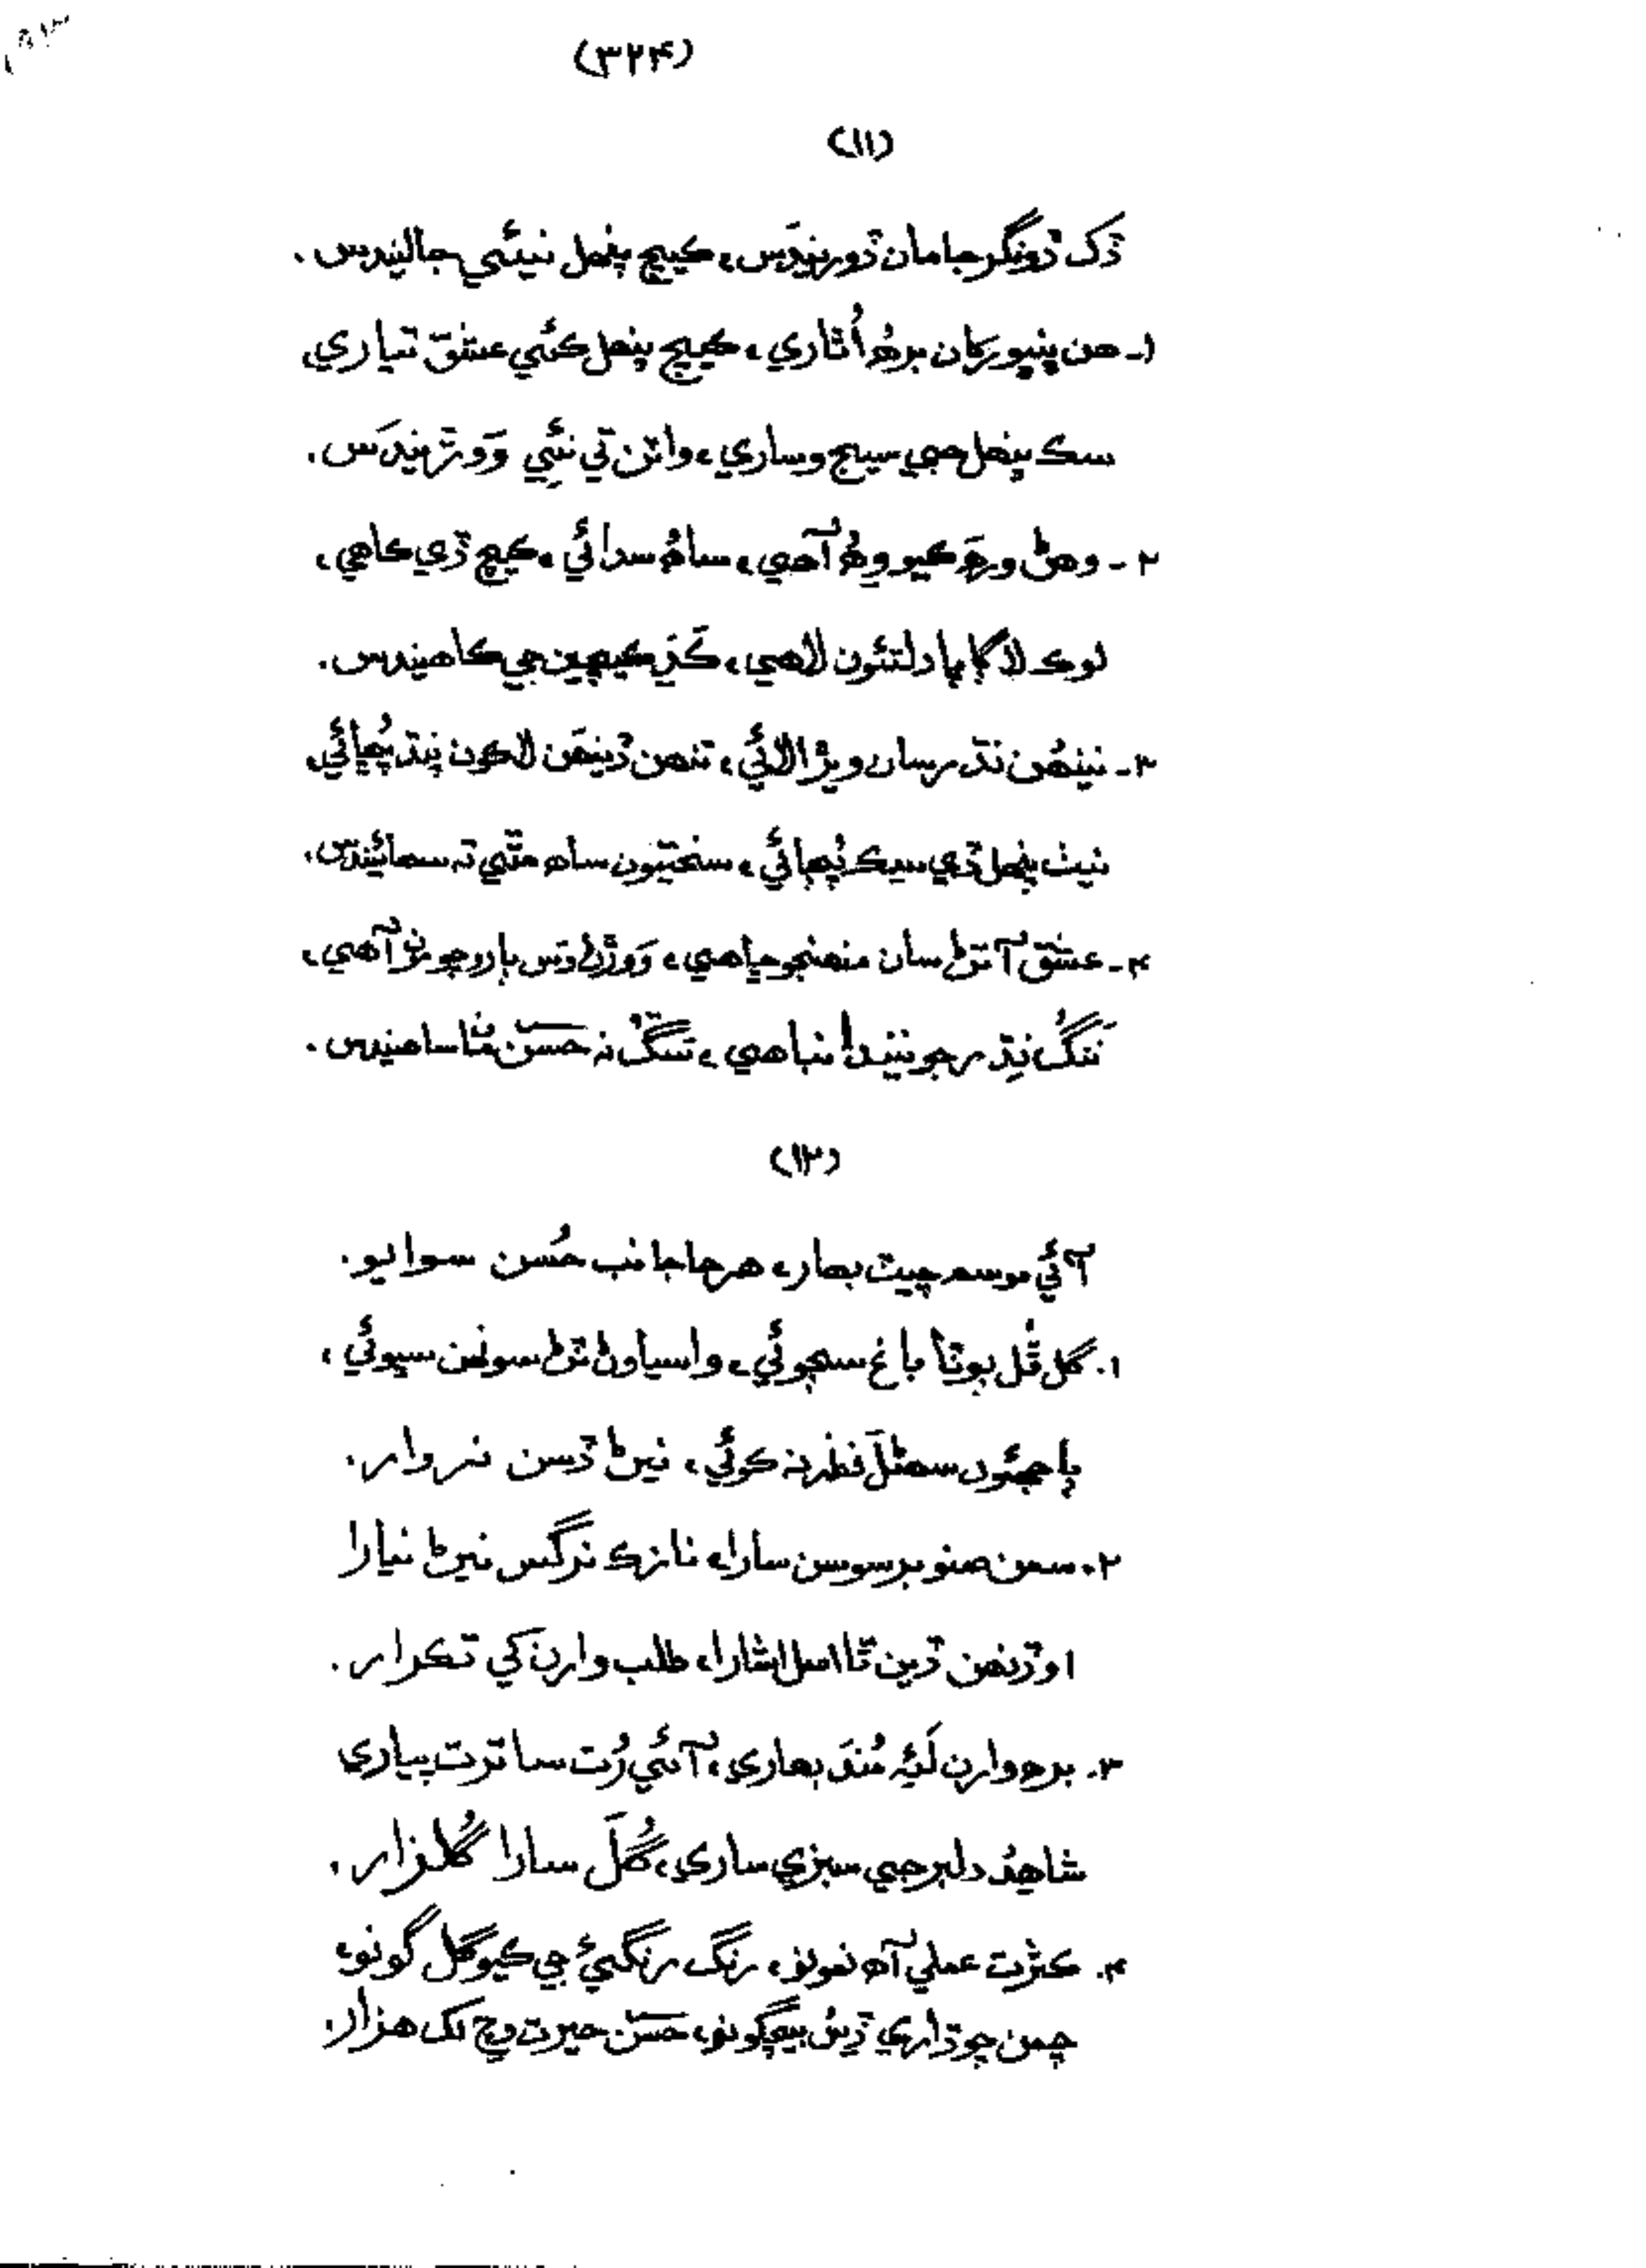 (۳۲۴)
(۱۱)
ڏک ڏونگر جا مان ڏوريندَس، ڪيچ پنهل نيئي جاليندس.
۱- هن ڀنڀور کان برهہُ اُٿاري، ڪيچ پنهل ڪئي عشق تياري
سڪ پنهل جي سيج وساري، واٽن تي نِئي وَوڙيندَس.
۲- وهڻ ورهہَ ڪيو ويهہُ آهي، ساهہُ سدائي، ڪيچ ڏي ڪاهي،
لوڪ لاڳاپا دلتئون لاهي، ڪَڍَ ڪيچين جي ڪاهيندس.
۳- نينهُن نڌر سان ويڙا لائي، تنهن ڏينهَن لاکون پنڌ پُڇائي،
نيٺ پنهل ڏي سيڪ پُڄائي، سختيون ساهہ مٿي تہ سهائيندس.
۴- عشق آتڻ سان منهنجو چاهي، وَوڙڻ وَس ٻاروچو آهي،
نَنگُ نِڌر جو نيندا نباهي، سَنگُ نہ حسن ساهيندس.
(۱۲)
آئي موسم چيٽ بهار، هر جا جانب حُسن سوايو.
۱. گل ڦُل ٻوٽا باغ سڀوئي، واسياوڻ تڻ سونهن سڀوئي،
ٻاجهئون سڄڻَ نظر نہ ڪوئي، نيڻ ڏسن نروار.
۲. سمن صنوبر سوسن سارا، نازڪ نرگس نيڻ نيارا
اوڏنهن ڏين ٿا اصل اشارا، طلب وارن کي تڪرار.
۳. برهہ وارن لَئہ مُندَ بهاري، آئي رُت ساترت پياري
شاهدُ دلبر جي سبزي ساري، گُلَ سارا گُلزار.
۴. ڪثرت عملي آهہ نمونو، رنگ رنگيءَ جي ڪيو گل گونو،
چمن چوڌاري ڏيئي بيچگونو، حسن حيرت وچ لک هزار.